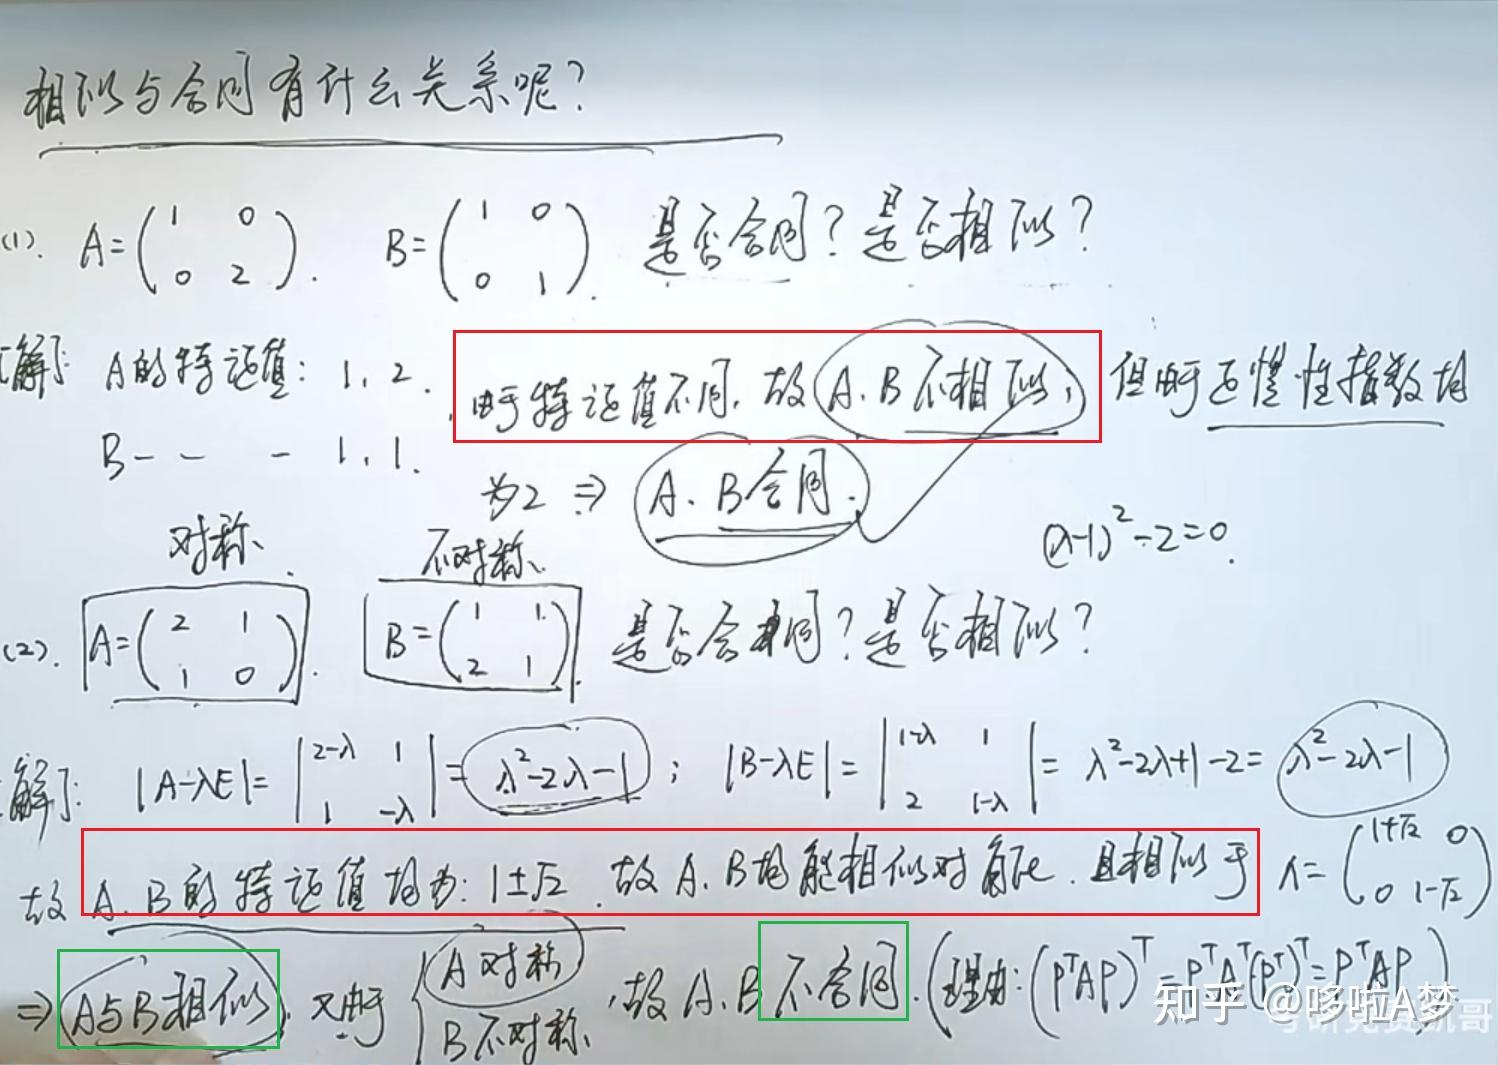 相似与合同有什么关系呢?
(1). A=(1 0
0 2). B=(1 0
0 1). 是否合同?是否相似?
解: A的特征值: 1, 2. 由于特征值不同, 故A.B不相似, 但由于正惯性指数均
B - - - 1, 1. 为2 ⇒ A.B合同.
对称. 不对称. (λ-1)²-2=0.
(2). A=(2 1
1 0). B=(1 1
2 1). 是否合同?是否相似?
解: |A-λE|=|2-λ 1
1 -λ|=λ²-2λ-1; |B-λE|=|1-λ 1
2 1-λ|=λ²-2λ+1-2=λ²-2λ-1
故A.B的特征值均为: 1±√2. 故A.B均能相似对角化. 且相似于 Λ=(1+√2 0
0 1-√2)
⇒ A与B相似, 又由于{A对称
B不对称, 故A.B不合同. (理由: (PᵀAP)ᵀ=PᵀAᵀ(Pᵀ)ᵀ=PᵀAP)
知乎 @哆啦A梦